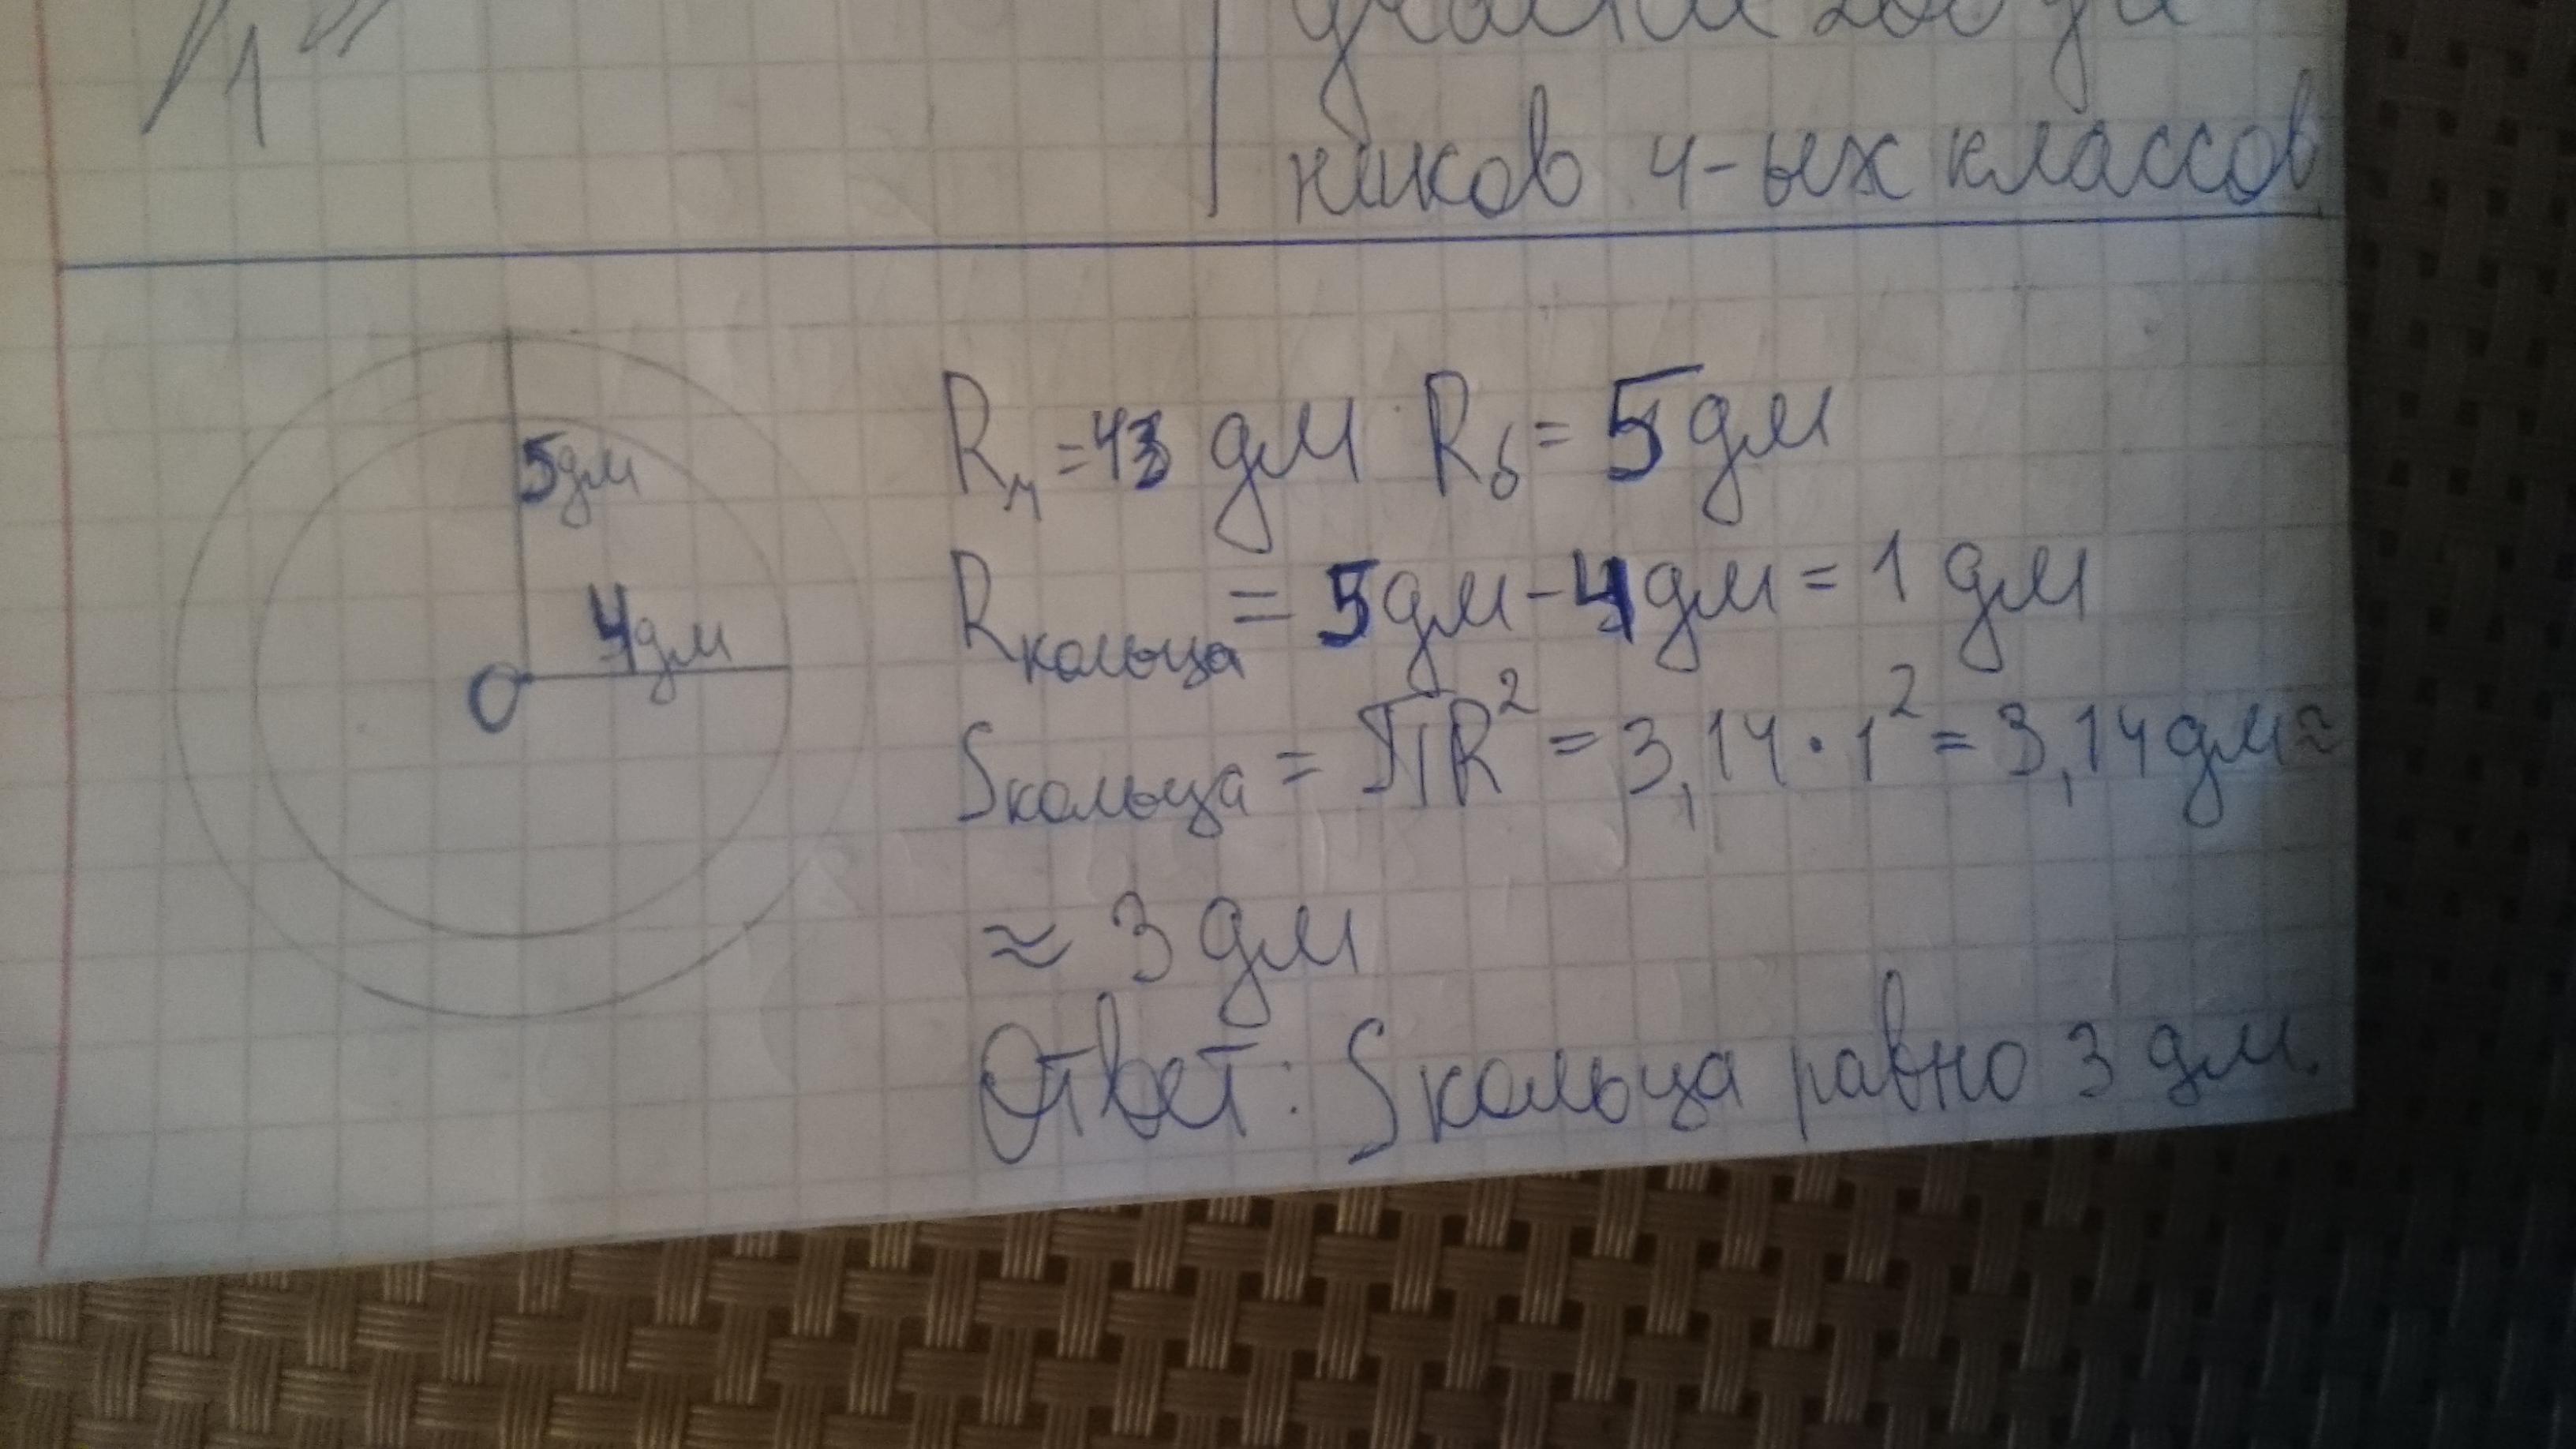 ников 4-ых классов
5дм
4дм
О
Rм = 43 дм Rб = 5дм
Rкольца = 5дм - 4дм = 1 дм
Sкольца = ПR² = 3,14 · 1² = 3,14дм ≈
≈ 3 дм
Ответ: S кольца равно 3 дм.